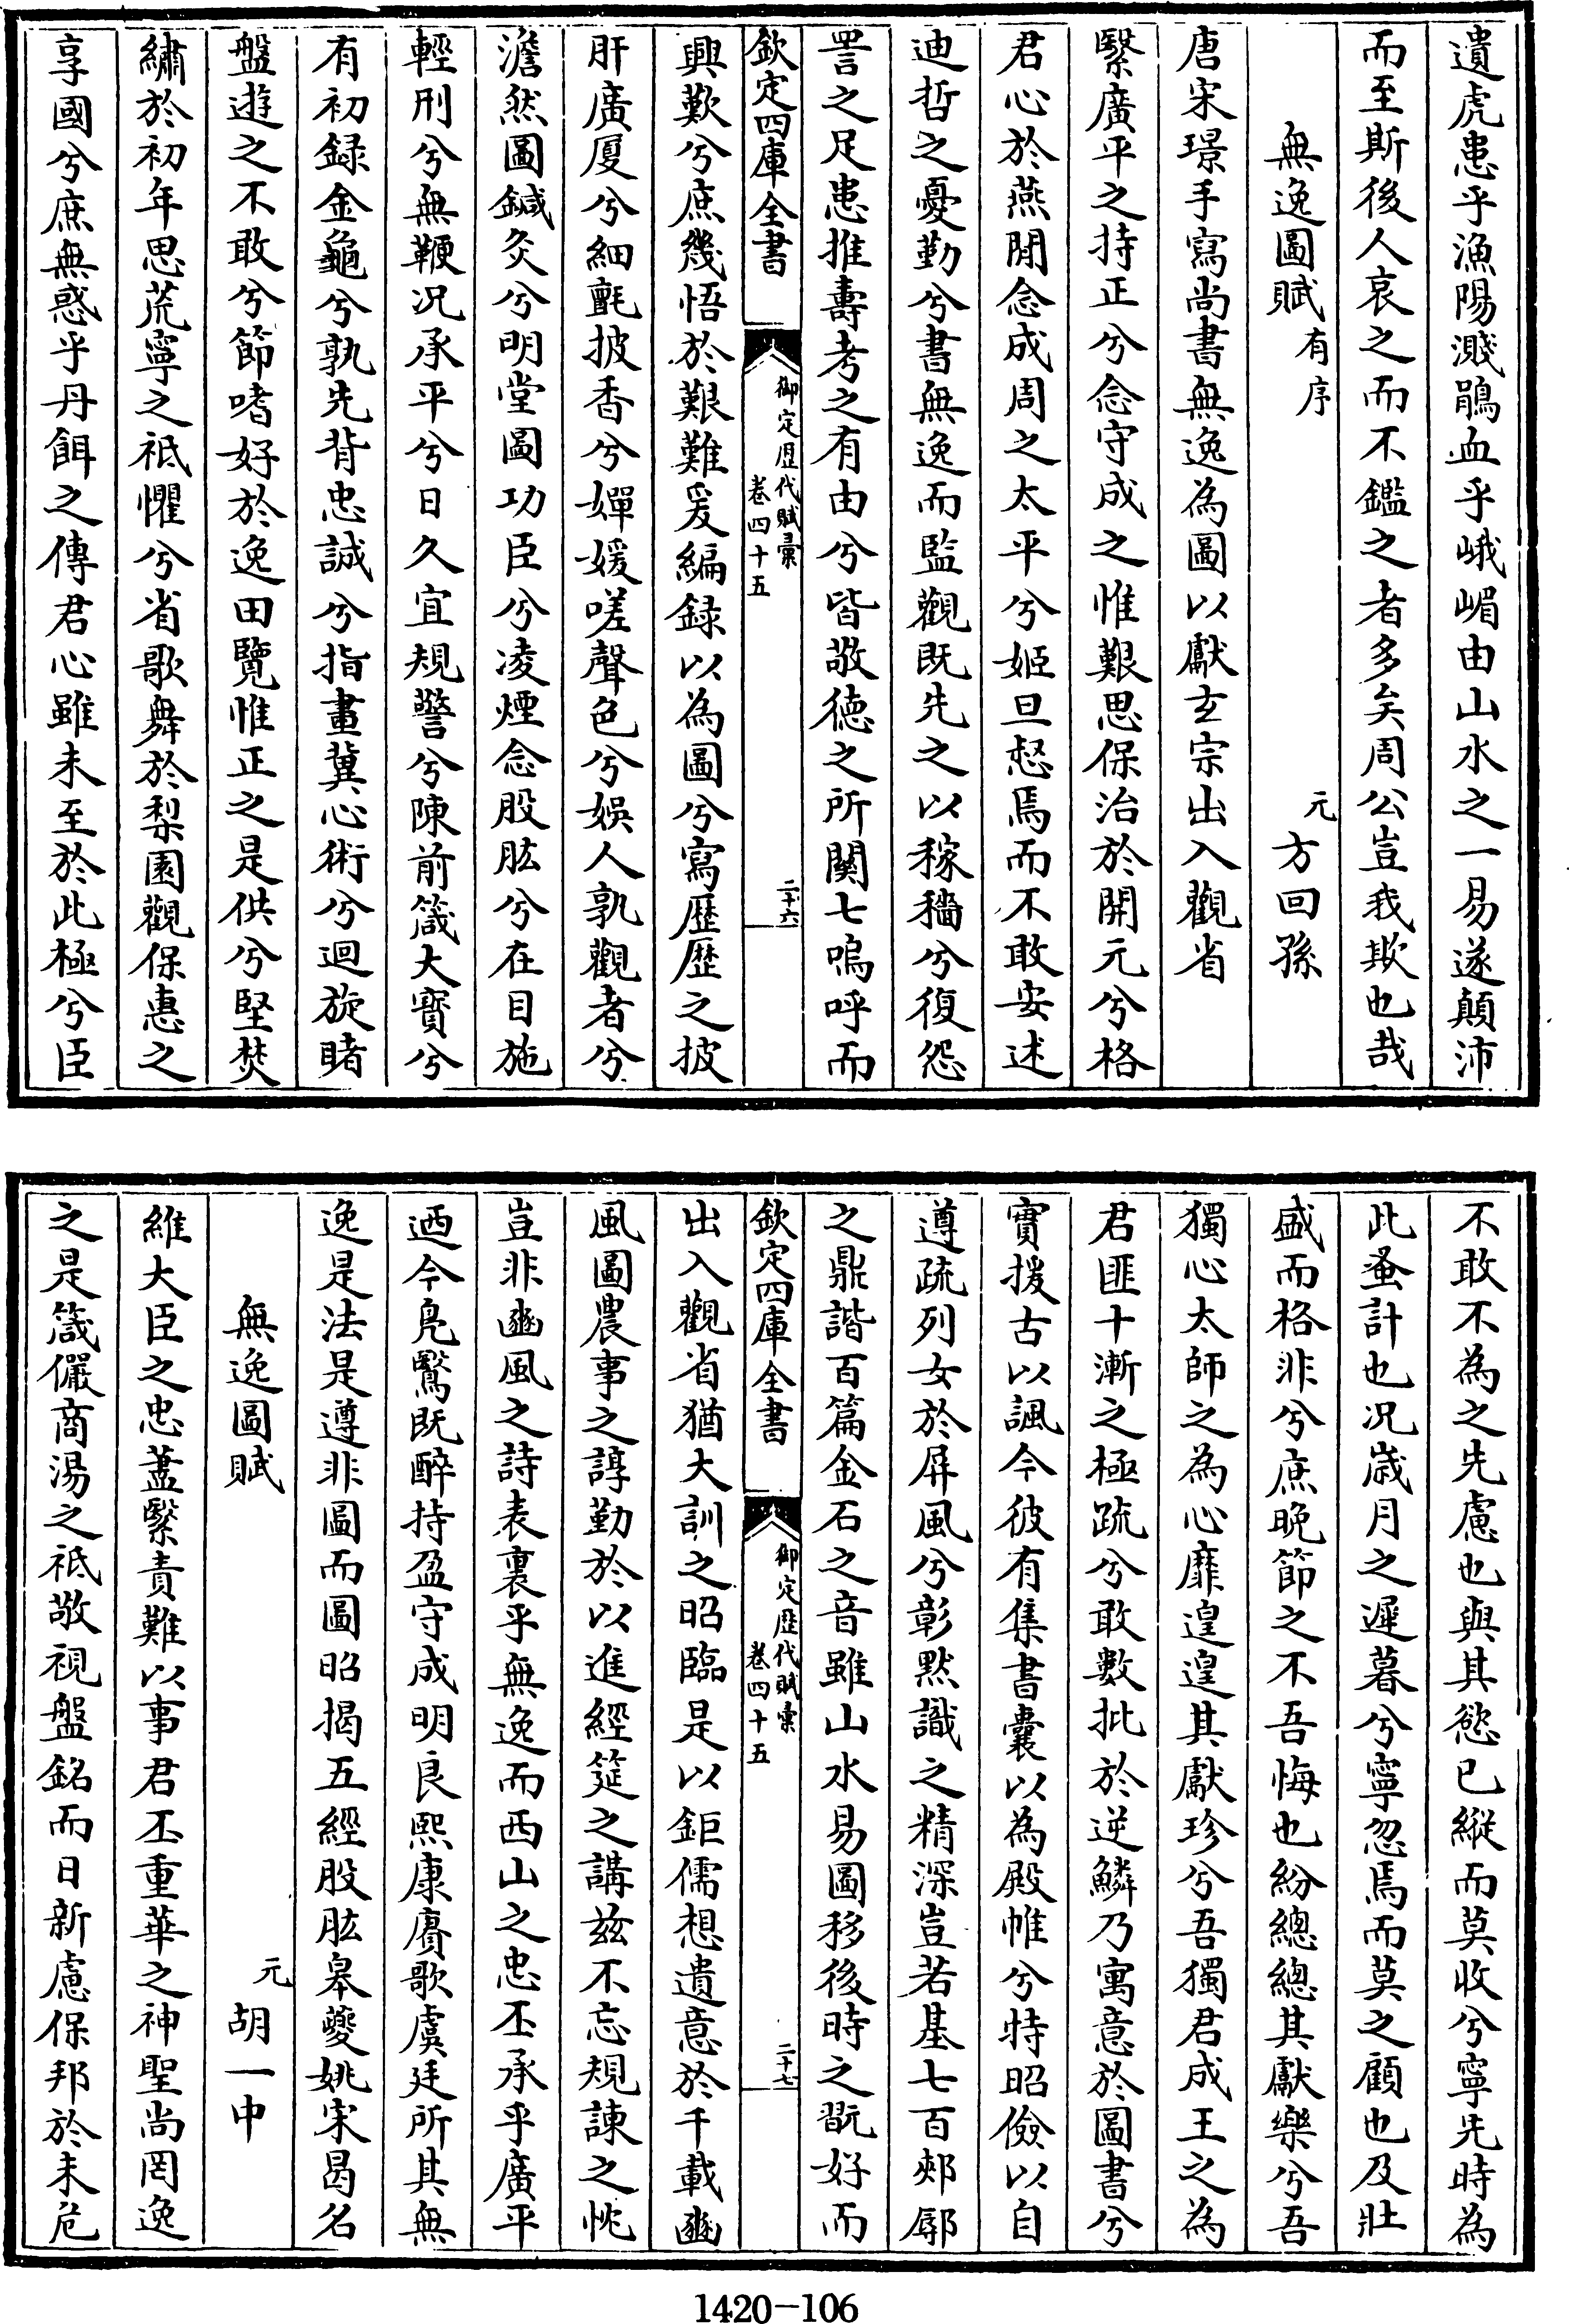 遺虎患乎漁陽濺鵑血乎峨嵋由山水之一易遂顛沛
而至斯後人哀之而不鑑之者多矣周公豈我欺也哉
無逸圖賦有序
元方回孫
唐宋璟手寫尚書無逸為圖以獻玄宗出入觀省
繄廣平之持正兮念守成之惟艱思保治於開元兮格
君心於燕閒念成周之太平兮姬旦惄焉而不敢安述
迪哲之憂勤兮書無逸而監觀既先之以稼穡兮復怨
詈之足患推壽考之有由兮皆敬德之所關七嗚呼而
欽定四庫全書
御定歷代賦彙
卷四十五
二十六
興歎兮庶幾悟於艱難爰編録以為圖兮寫歷歷之披
肝廣厦兮細氈披香兮嬋媛嗟聲色兮娛人孰觀者兮
澹然圖鍼灸兮明堂圖功臣兮凌煙念股肱兮在目施
輕刑兮無鞭况承平兮日久宜規警兮陳前箴大寶兮
有初録金龜兮孰先背忠誠兮指畫冀心術兮迴旋睹
盤遊之不敢兮節嗜好於逸田覽惟正之是供兮堅焚
繡於初年思荒寧之祗懼兮省歌舞於梨園觀保惠之
享國兮庶無惑乎丹餌之傳君心雖未至於此極兮臣
不敢不為之先慮也與其慾已縱而莫收兮寧先時為
此蚤計也况歲月之遲暮兮寧忽焉而莫之顧也及壯
盛而格非兮庶晚節之不吾悔也紛總總其獻樂兮吾
獨心太師之為心靡遑遑其獻珍兮吾獨君成王之為
君匪十漸之極疏兮敢數批於逆鱗乃寓意於圖書兮
實援古以諷今彼有集書囊以為殿帷兮特昭儉以自
遵疏列女於屏風兮彰默識之精深豈若基七百郟鄏
之鼎諧百篇金石之音雖山水易圖移後時之翫好而
欽定四庫全書
御定歷代賦彙
卷四十五
二十七
出入觀省猶大訓之昭臨是以鉅儒想遺意於千載豳
風圖農事之諄勤於以進經筵之講兹不忘規諫之忱
豈非豳風之詩表裏乎無逸而西山之忠丕承乎廣平
迺今凫鷖既醉持盈守成明良熙康賡歌虞廷所其無
逸是法是遵非圖而圖昭揭五經股肱皋夔姚宋曷名
無逸圖賦
元胡一中
維大臣之忠藎繄責難以事君丕重華之神聖尚罔逸
之是箴儼商湯之祗敬視盤銘而日新慮保邦於未危
1420-106